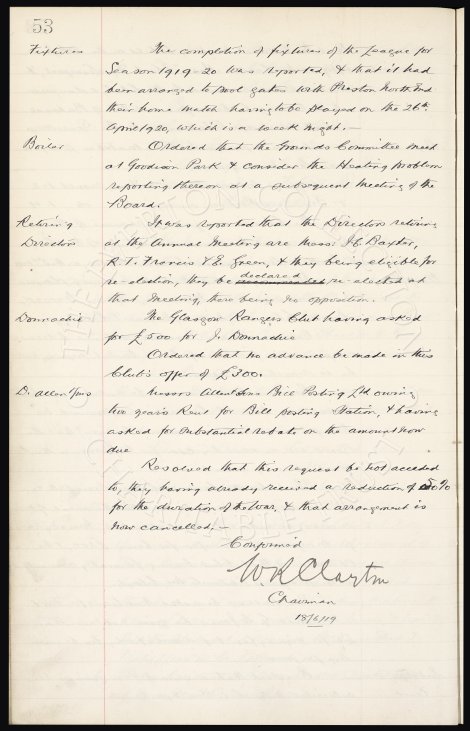 53
Fixtures The completion of fixtures of the League for
Season 1919-20 was reported, & that it had
been arranged to pool gates with Preston North End
their home match having to be played on the 26th
April 1920, which is a week night.—
Boiler Ordered that the Grounds Committee meet
at Goodison Park & consider the Heating problem
reporting thereon at a subsequent Meeting of the
Board.
Retiring It was reported that the Directors retiring
Directors at the Annual Meeting are Messrs J C Baxter,
R. T. Francis & E. Green, & they being eligible for
re-election, they be declared re-elected at
that Meeting, there being no opposition.
Donnachie The Glasgow Rangers Club having asked
for £500 for J. Donnachie
Ordered that no advance be made on this
Club's offer of £300.
D. Allen Sons Messrs Allen & Sons Bill Posting Ltd owing
two years Rent for Bill posting Station, & having
asked for substantial rebate on the amount now
due
Resolved that this request be not acceded
to, they having already received a reduction of 50%
for the duration of the war, & that arrangement is
now cancelled.—
Confirmed
W. R. Clayton
Chairman
18/6/19